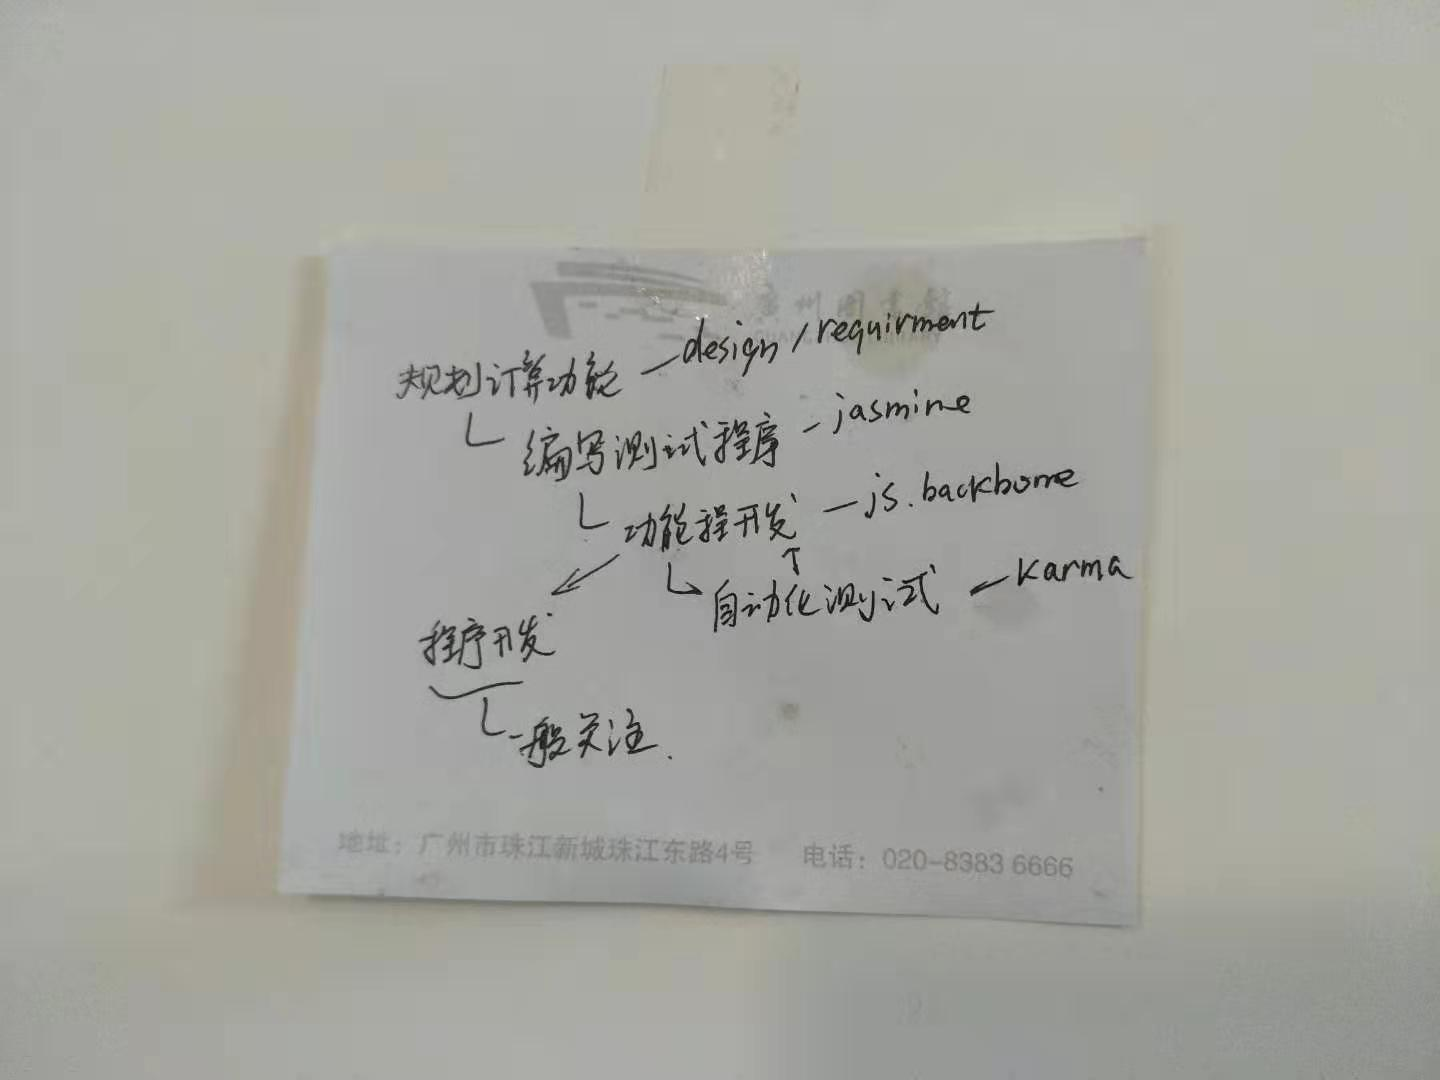 广州图书馆
规划计算功能 — design / requirment
编写测试程序 — jasmine
功能程开发 — js.backbone
自动化测试 — karma
程序开发
一般关注.
地址：广州市珠江新城珠江东路4号 电话：020-8383 6666